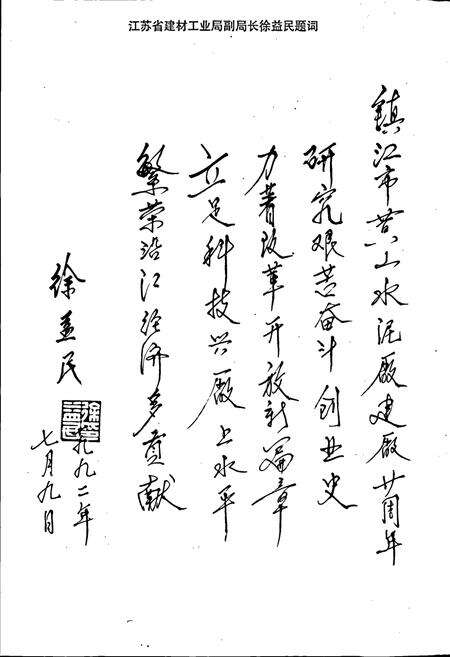 江苏省建材工业局副局长徐益民题词
镇江市黄山水泥厂建厂廿周年
研究艰苦奋斗创业史
力著改革开放新篇章
立足科技兴厂上水平
繁荣沿江经济多贡献
徐益民
一九九二年
七月九日